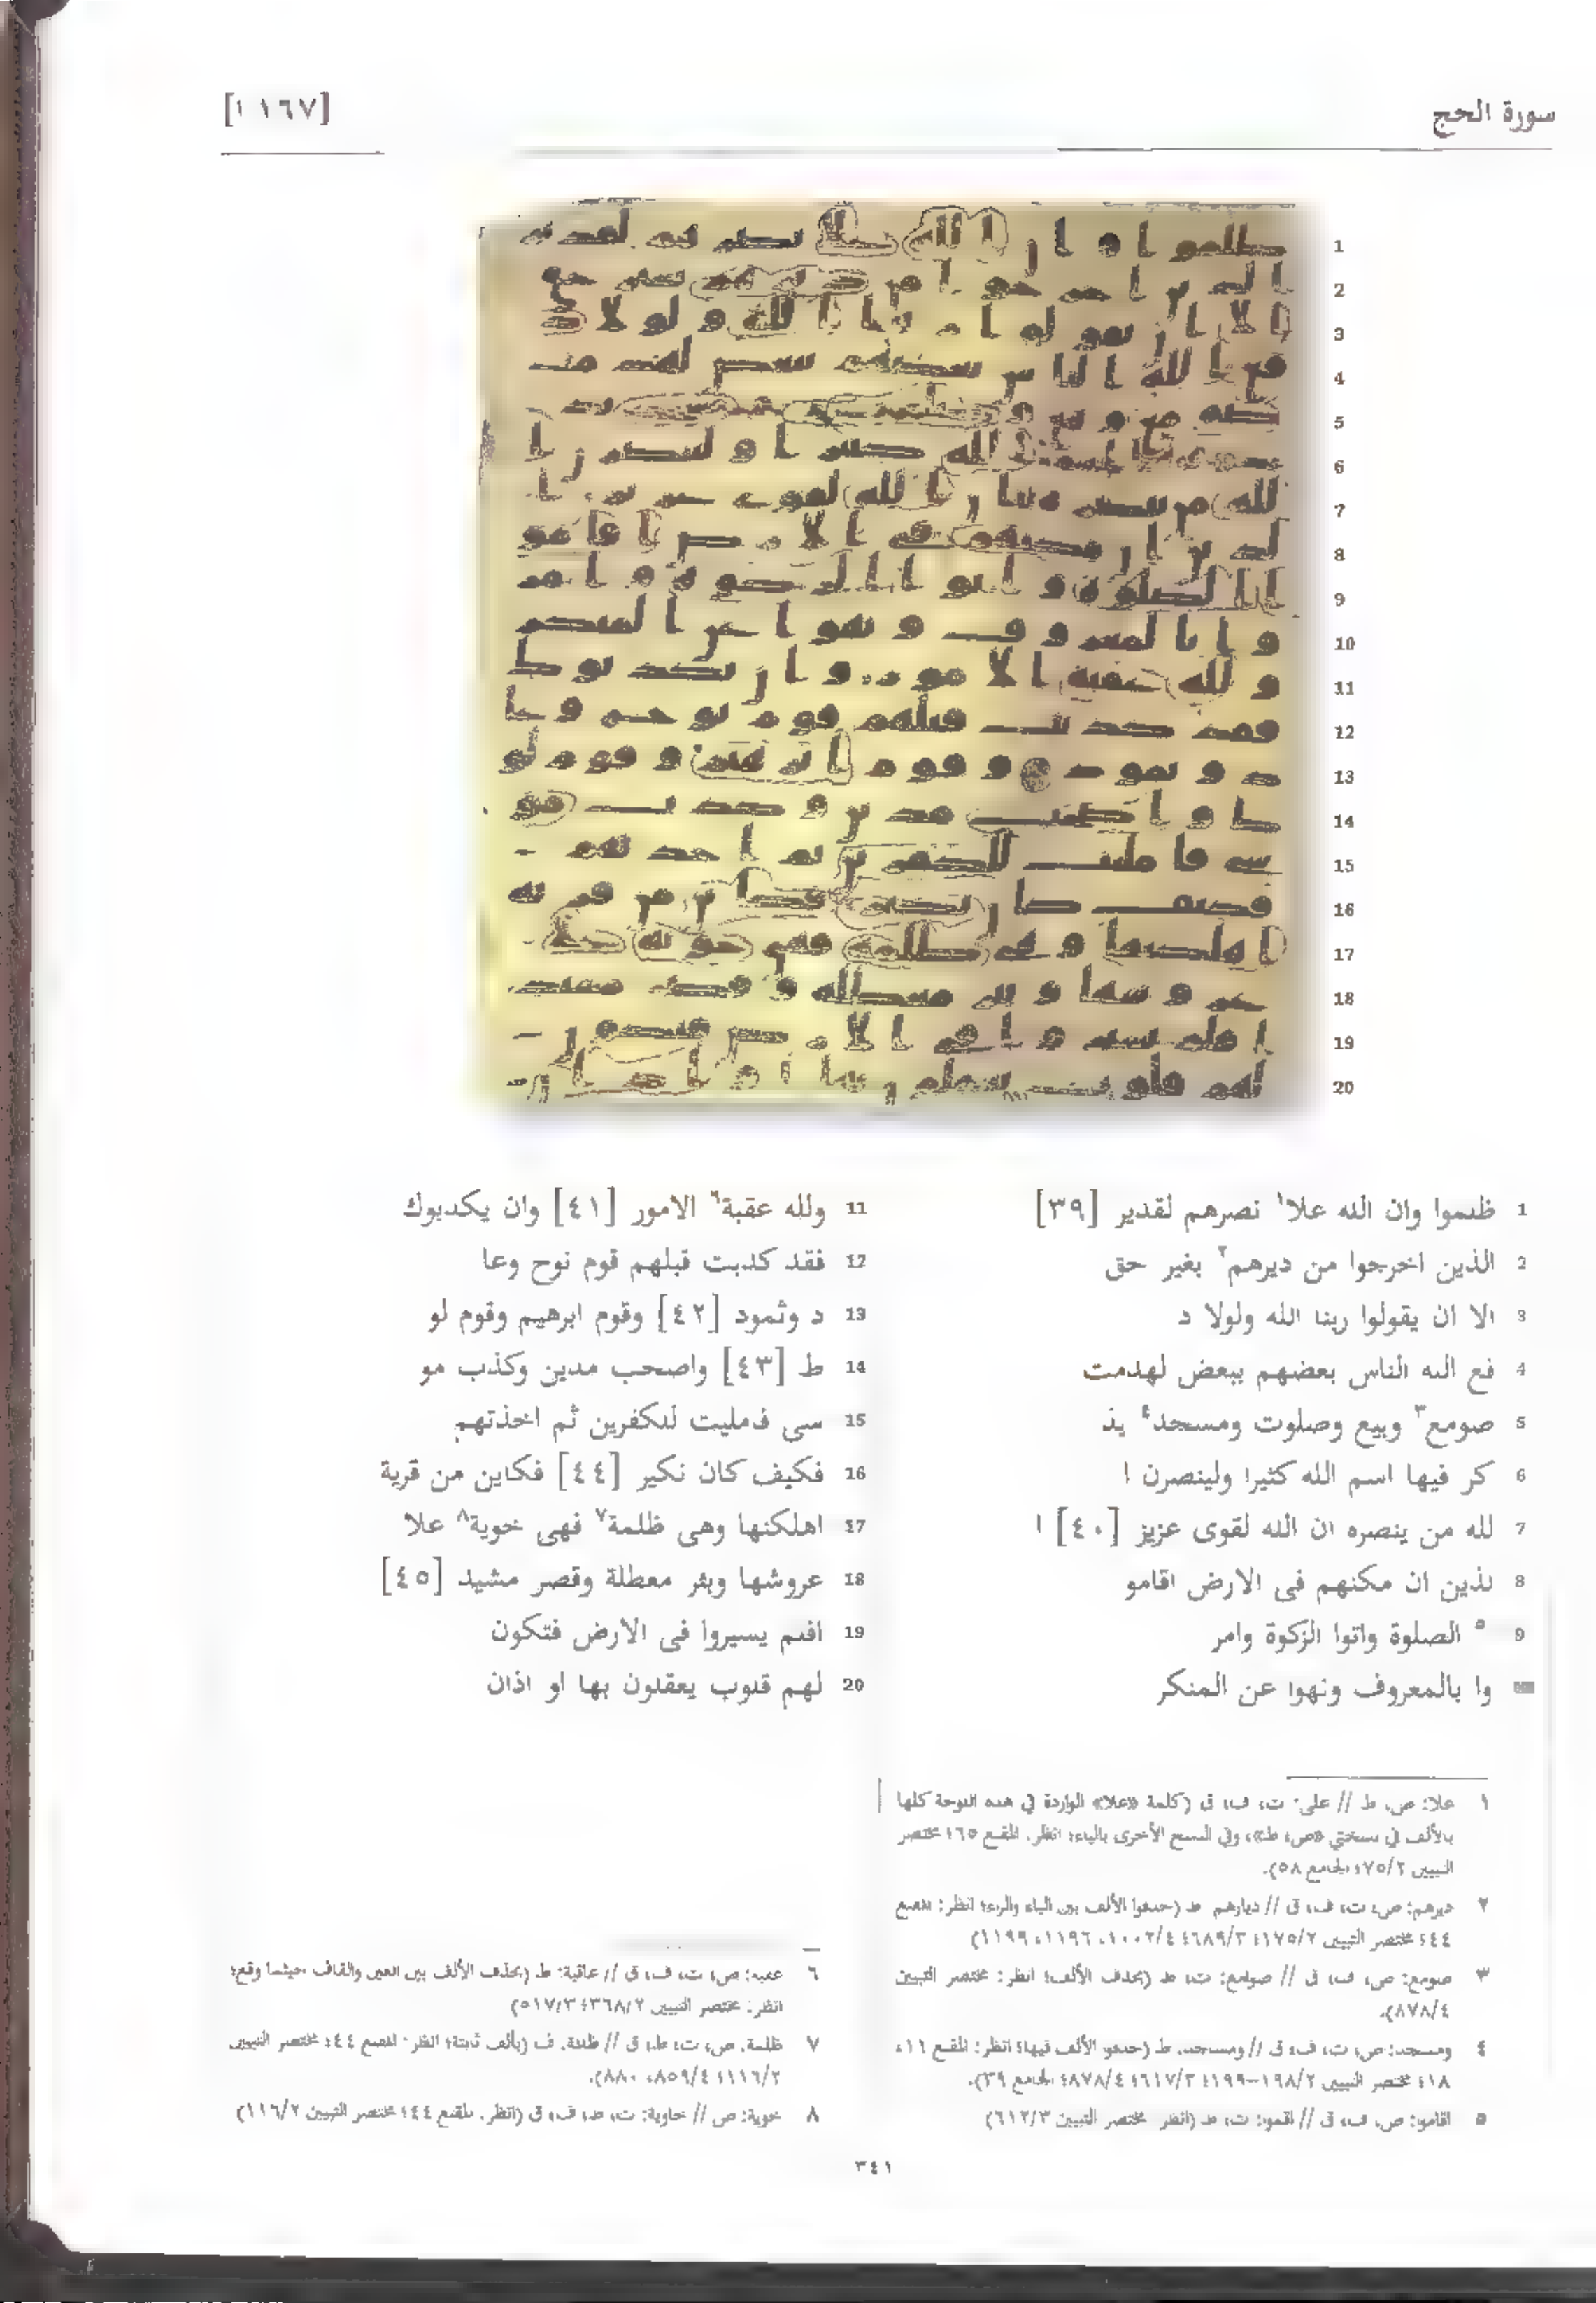 سورة الحج
[١٦٧ ا]
1 ظلموا وان الله علا١ نصرهم لقدير [٣٩]
2 الذين اخرجوا من ديرهم٢ بغير حق
3 الا ان يقولوا ربنا الله ولولا د
4 فع الله الناس بعضهم ببعض لهدمت
5 صومع٣ وبيع وصلوت ومسجد٤ يذ
6 كر فيها اسم الله كثيرا ولينصرن ا
7 لله من ينصره ان الله لقوى عزيز [٤٠] ا
8 لذين ان مكنهم فى الارض اقامو
9 ٥ الصلوة واتوا الزكوة وامر
وا بالمعروف ونهوا عن المنكر
11 ولله عقبة٦ الامور [٤١] وان يكذبوك
12 فقد كذبت قبلهم قوم نوح وعا
13 د وثمود [٤٢] وقوم ابرهيم وقوم لو
14 ط [٤٣] واصحب مدين وكذب مو
15 سى فمليت للكفرين ثم اخذتهم
16 فكيف كان نكير [٤٤] فكاين من قرية
17 اهلكنها وهى ظلمة٧ فهى خوية٨ علا
18 عروشها وبئر معطلة وقصر مشيد [٤٥]
19 افلم يسيروا فى الارض فتكون
20 لهم قلوب يعقلون بها او اذان
١ علا: ص، ط // على: ت، ف، ق (كلمة «علا» الواردة في هذه اللوحة كلها
بالألف في نسختي «ص، ط»، وفي النسخ الأخرى بالياء؛ انظر: المقنع ٦٥؛ مختصر
التبيين ٧٥/٢؛ الجامع ٥٨).
٢ ديرهم: ص، ت، ف، ق // ديارهم: ط (حذفوا الألف بين الياء والراء؛ انظر: المقنع
٤٤؛ مختصر التبيين ١٧٥/٢؛ ٦٨٩/٣؛ ١٠٠٢/٤، ١١٩٦، ١١٩٩)
٣ صومع: ص، ف، ق // صوامع: ت، ط (بحذف الألف؛ انظر: مختصر التبيين
٨٧٨/٤).
٤ ومسجد: ص، ت، ف، ق // ومساجد: ط (حذفو الألف فيها؛ انظر: المقنع ١١،
١٨؛ مختصر التبيين ١٩٨/٢–١٩٩؛ ٦١٧/٣؛ ٨٧٨/٤؛ الجامع ٣٩).
٥ اقامو: ص، ف، ق // اقمو: ت، ط (انظر: مختصر التبيين ٦١٢/٣)
٦ عقبة: ص، ت، ف، ق // عاقبة: ط (بحذف الألف بين العين والقاف حيثما وقع؛
انظر: مختصر التبيين ٣٦٨/٢؛ ٥١٧/٣)
٧ ظلمة: ص، ت، ط، ق // ظلمة: ف (بألف ثابتة؛ انظر: المقنع ٤٤؛ مختصر التبيين
١١٦/٢؛ ٨٥٩/٤، ٨٨٠).
٨ خوية: ص // خاوية: ت، ط، ف، ق (انظر: المقنع ٤٤؛ مختصر التبيين ١١٦/٢)
٣٤١